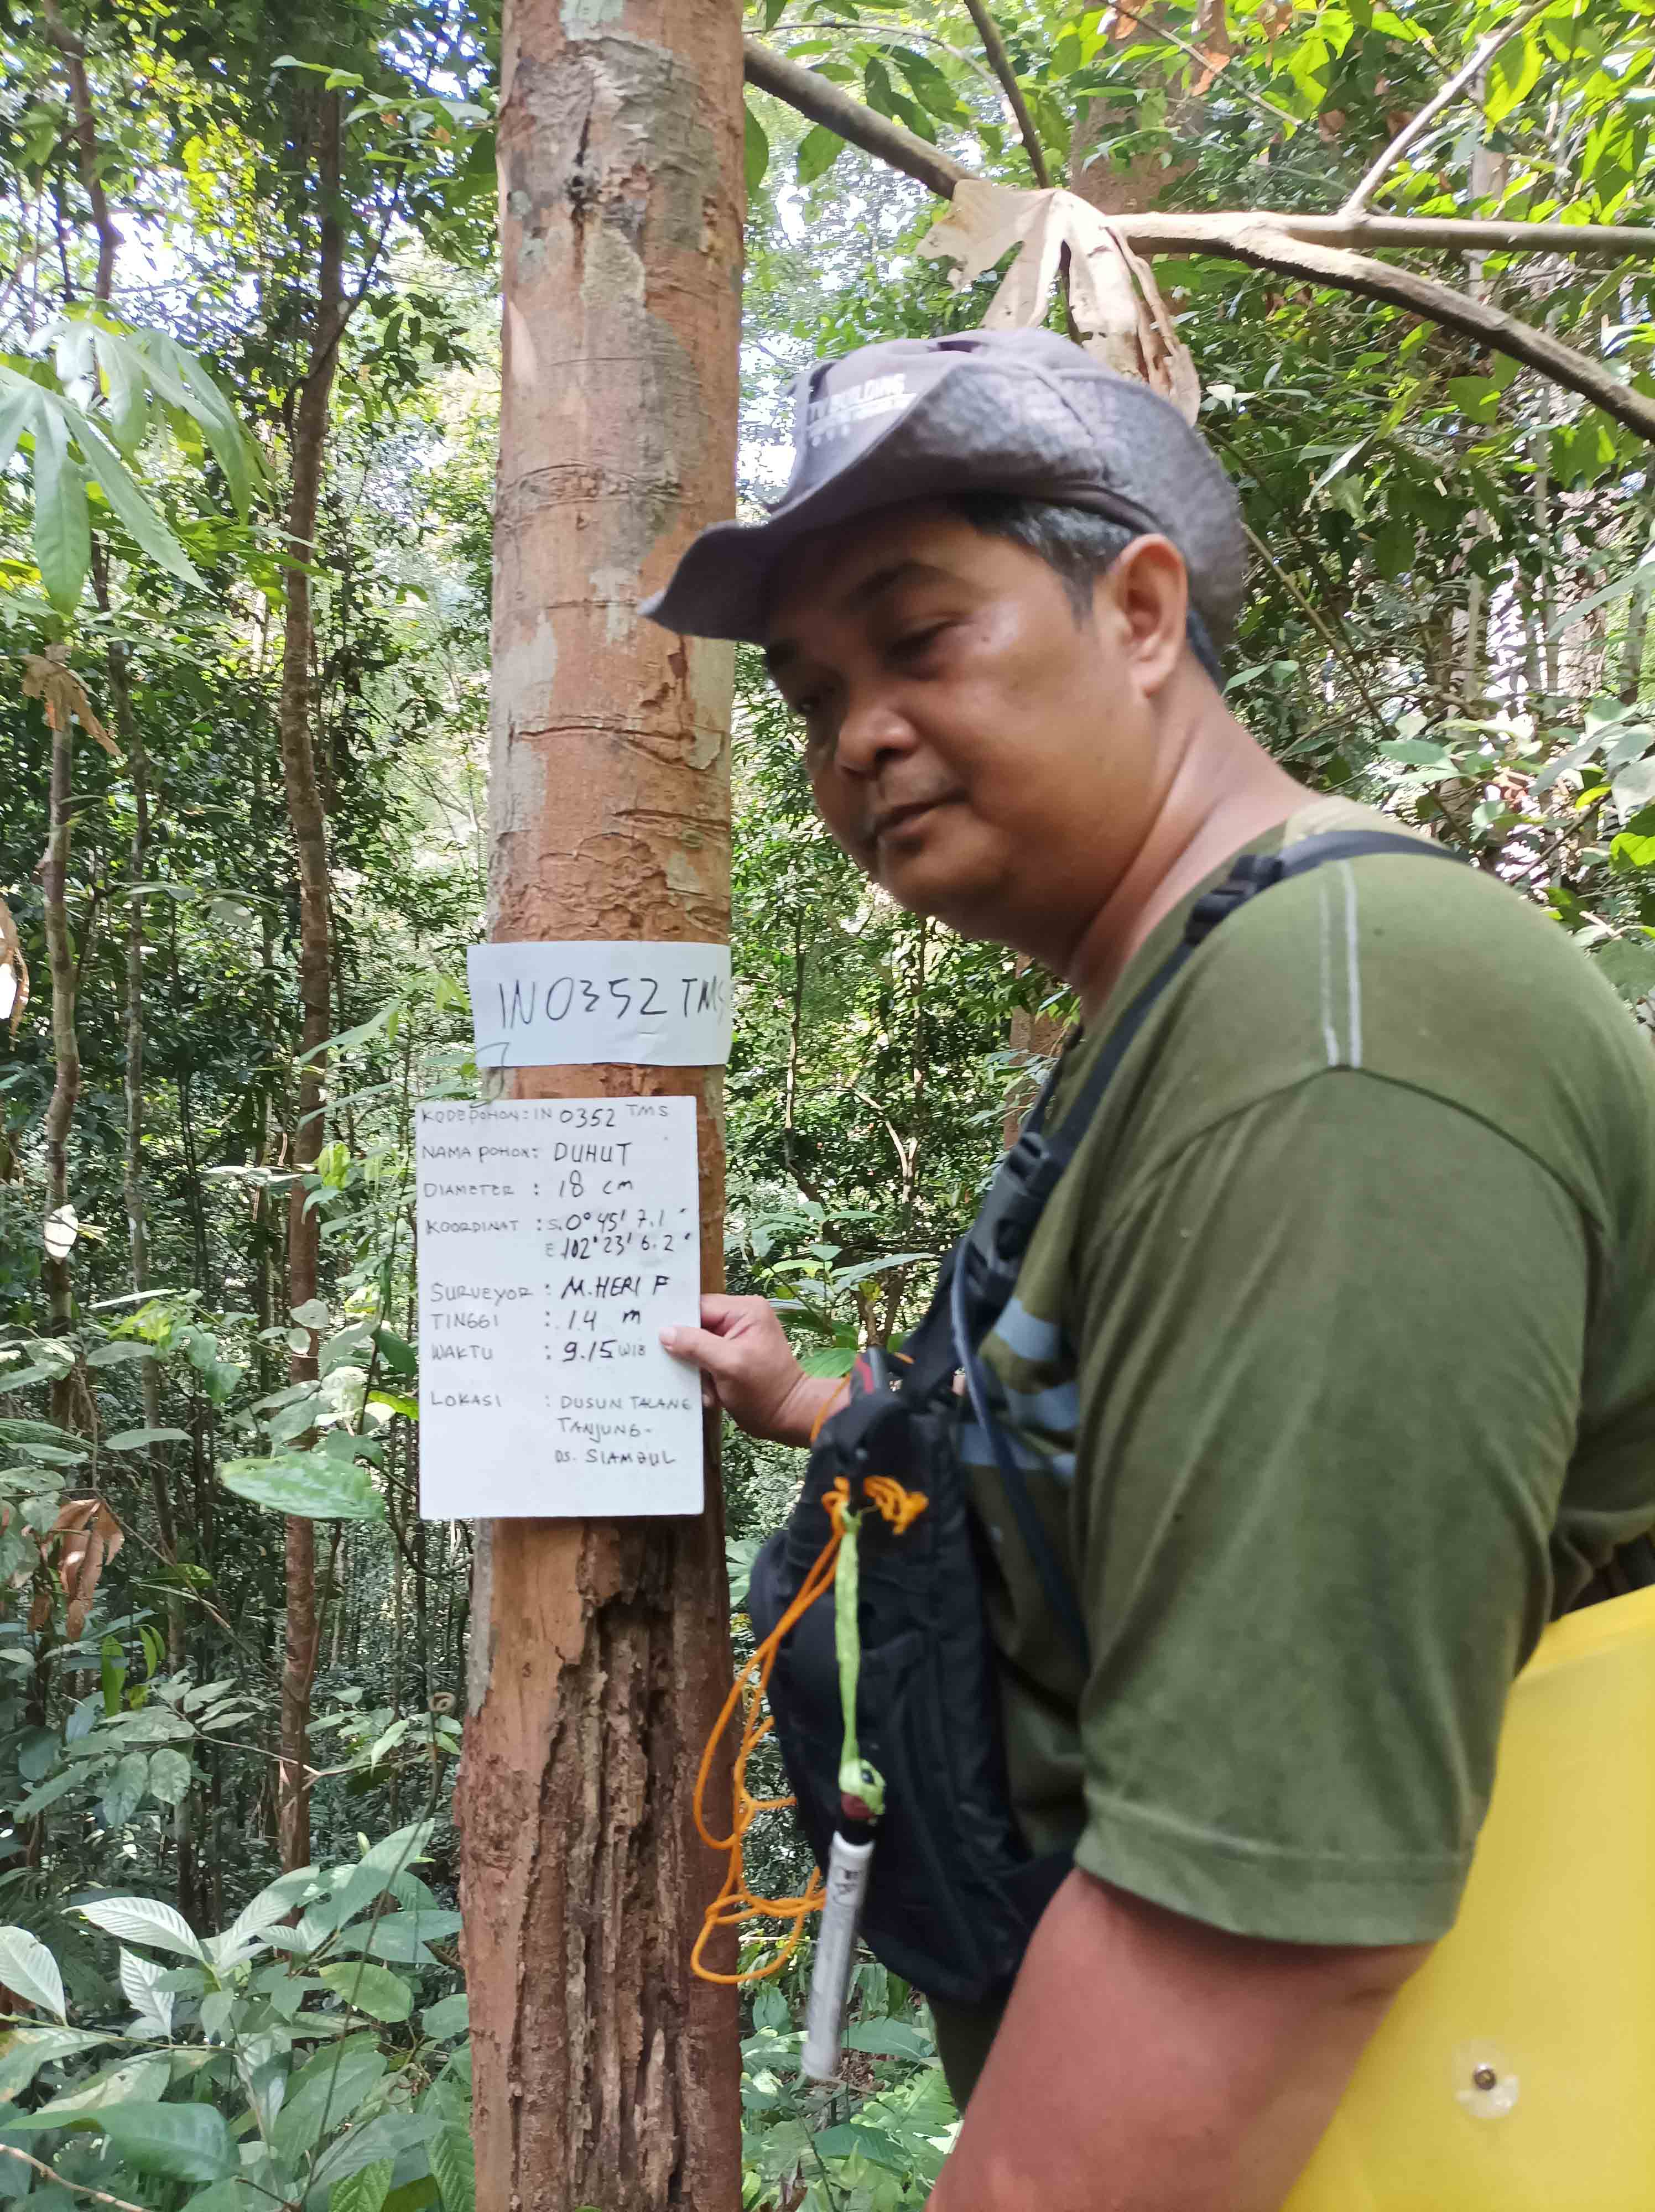 IN0352 TMS
KODE POHON : IN 0352 TMS
NAMA POHON : DUHUT
DIAMETER : 18 cm
KOORDINAT : S. 0° 45' 7.1"
E 102° 23' 6.2"
SURVEYOR : M. HERI F
TINGGI : 14 m
WAKTU : 9.15 WIB
LOKASI : DUSUN TALANG
TANJUNG -
DS. SIAMBUL